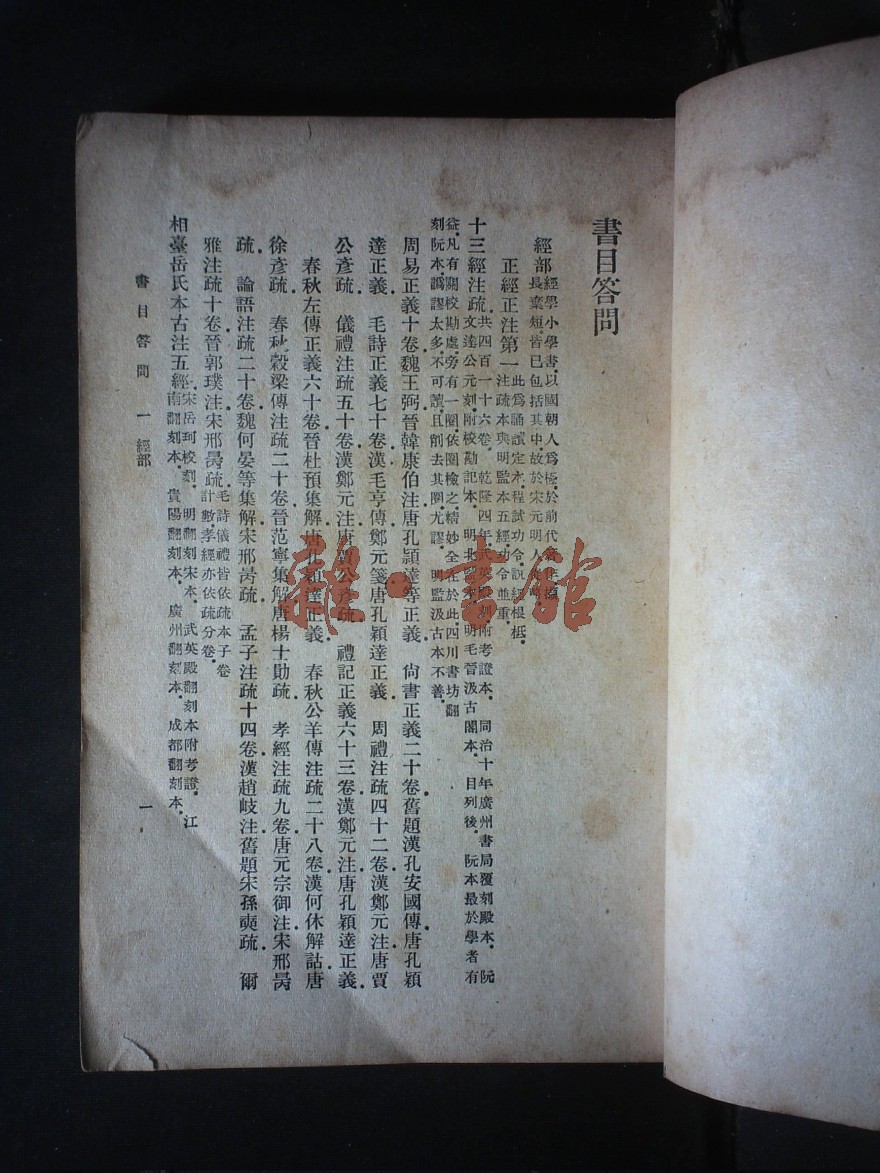 書目答問
經部 經學小學書以國朝人爲極於前代
長棄短皆已包括其中故於宋元明人
正經正注第一 此爲誦讀定本程試功令說經根柢
注疏本與明監本五經功令並重
十三經注疏 共四百一十六卷 乾隆四年武英殿刻附考證本 同治十年廣州書局覆刻殿本 阮
文達公元刻附校勘記本 明北監本 明毛晉汲古閣本 目列後 阮本最於學者有
益凡有關校勘處旁有一圈依圈檢之精妙全在於此四川書坊翻
刻阮本譌謬太多不可讀且削去其圈尤謬 明監汲古本不善
周易正義十卷魏王弼晉韓康伯注唐孔穎達等正義 尙書正義二十卷舊題漢孔安國傳唐孔穎
達正義 毛詩正義七十卷漢毛亨傳鄭元箋唐孔穎達正義 周禮注疏四十二卷漢鄭元注唐賈
公彥疏 儀禮注疏五十卷漢鄭元注唐賈公彥疏 禮記正義六十三卷漢鄭元注唐孔穎達正義
春秋左傳正義六十卷晉杜預集解唐孔穎達正義 春秋公羊傳注疏二十八卷漢何休解詁唐
徐彥疏 春秋穀梁傳注疏二十卷晉范甯集解唐楊士勛疏 孝經注疏九卷唐元宗御注宋邢昺
疏 論語注疏二十卷魏何晏等集解宋邢昺疏 孟子注疏十四卷漢趙岐注舊題宋孫奭疏 爾
雅注疏十卷晉郭璞注宋邢昺疏 毛詩儀禮皆依疏本子卷
計數孝經亦依疏分卷
相臺岳氏本古注五經 宋岳珂校刻 明翻刻宋本 武英殿翻刻本附考證 江
南翻刻本 貴陽翻刻本 廣州翻刻本 成都翻刻本
書目答問 一 經部
一
雜·書館